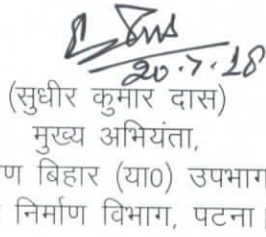 20.7.18
(सुधीर कुमार दास)
मुख्य अभियंता,
ण बिहार (या0) उपभाग
निर्माण विभाग, पटना।